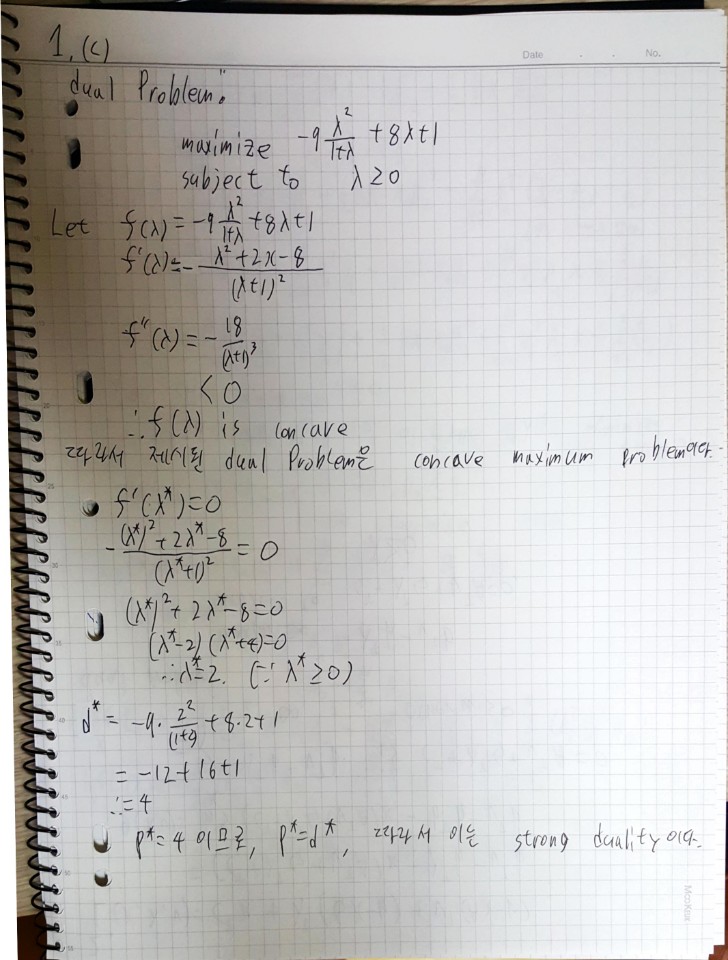 1. (c)
Date . . No.
dual Problem:
maximize -9 λ²/(1+λ) + 8λ+1
subject to λ≥0
Let f(λ) = -9 λ²/(1+λ) + 8λ+1
f'(λ) = - (λ²+2x-8)/(λ+1)²
f''(λ) = - 18/(λ+1)³
< 0
∴ f(λ) is concave
따라서 제시된 dual Problem은 concave maximum problem이다.
f'(λ*)=0
- ((λ*)²+2λ*-8)/(λ*+1)² = 0
(λ*)²+2λ*-8=0
(λ*-2)(λ*+4)=0
∴λ*=2. (∵ λ*≥0)
d* = -9· 2²/(1+2) + 8·2+1
= -12+16+1
∴=4
p*=4 이므로, p*=d*, 따라서 이는 strong duality이다.